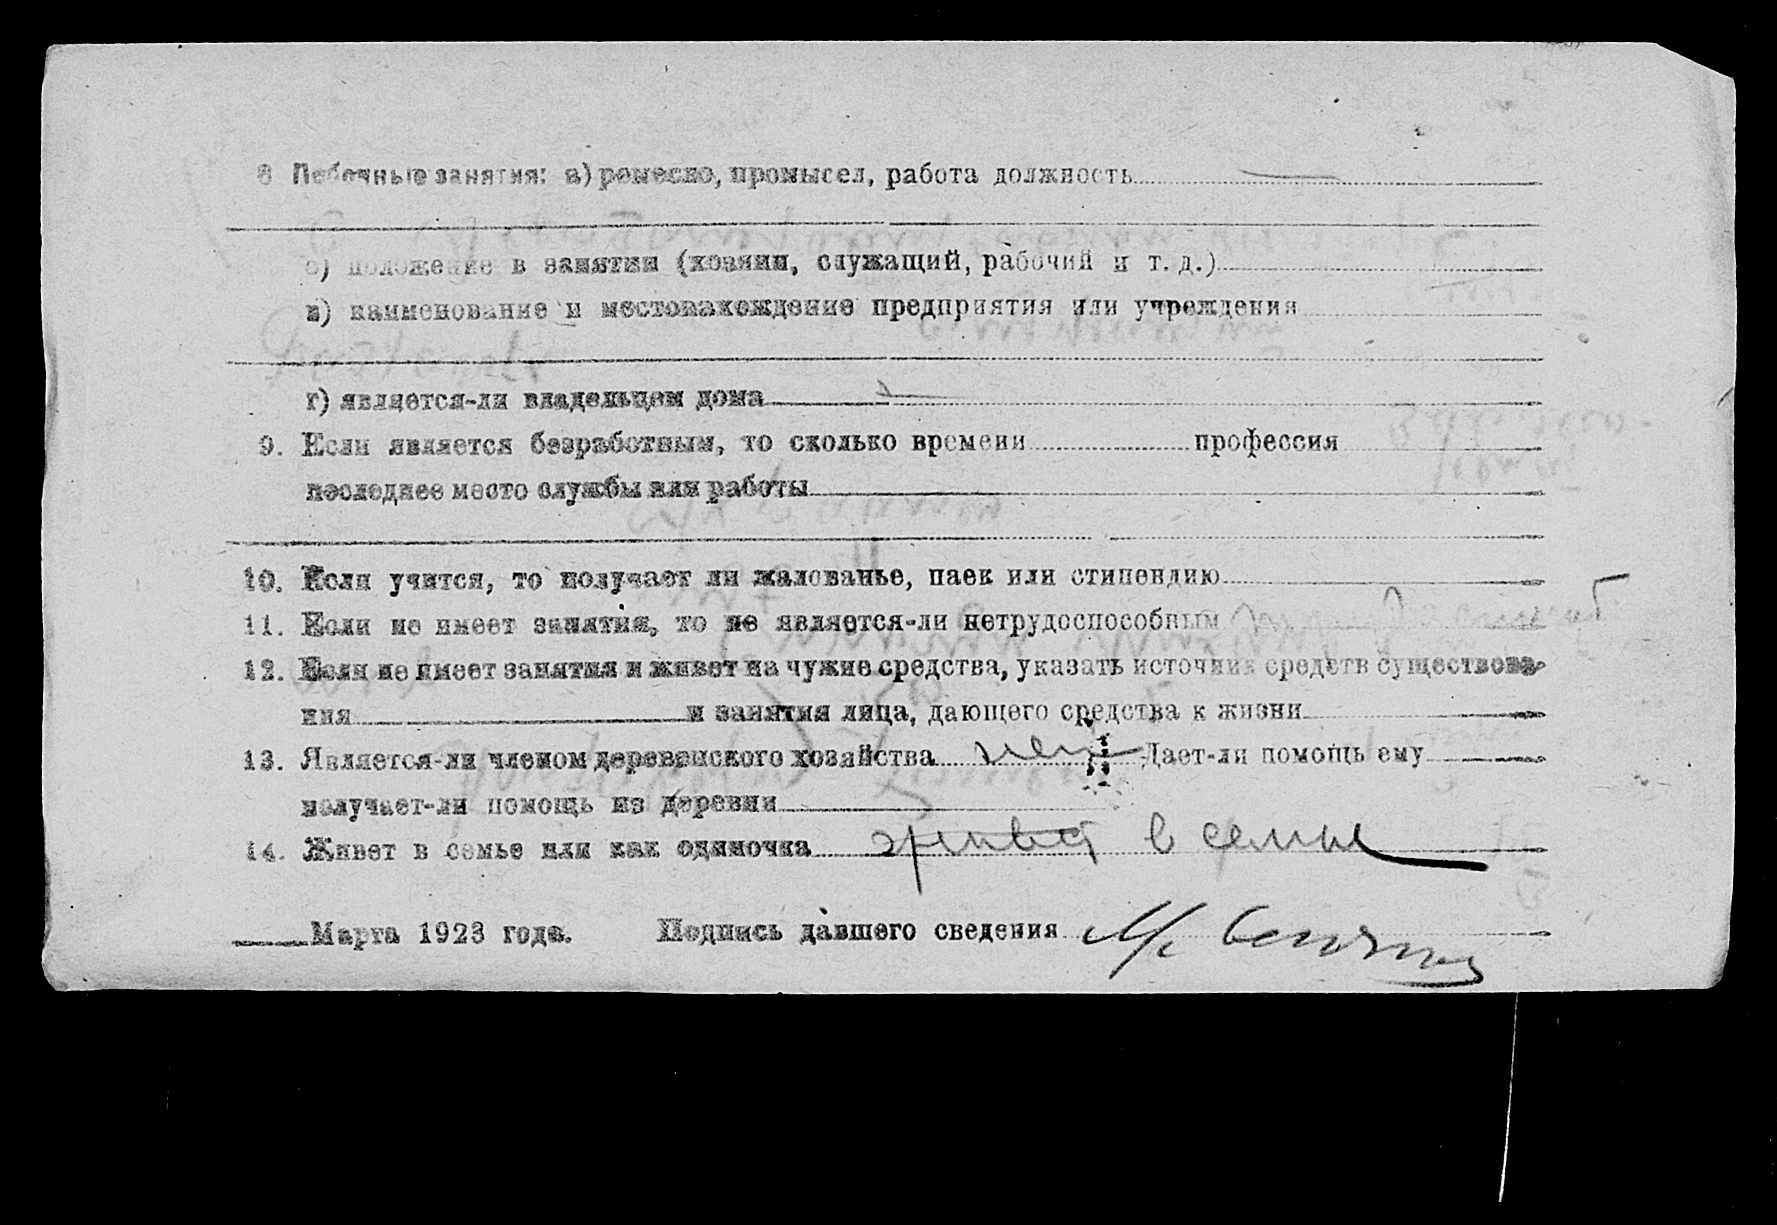 8 Побочные занятия: а) ремесло, промысел, работа должность
б) положение в занятии (хозяин, служащий, рабочий и т. д.)
в) наименование и местонахождение предприятия или учреждения
г) является-ли владельцем дома
9. Если является безработным, то сколько времени профессия
последнее место службы или работы
10. Если учится, то получает ли жалованье, паек или стипендию
11. Если не имеет занятия, то не является-ли нетрудоспособным
12. Если не имеет занятия и живет на чужие средства, указать источник средств существова-
ния и занятия лица, дающего средства к жизни
13. Является-ли членом деревенского хозяйства нет Дает-ли помощь ему
получает-ли помощь из деревни
14. Живет в семье или как одиночка живет в семье
Марта 1923 года. Подпись давшего сведения